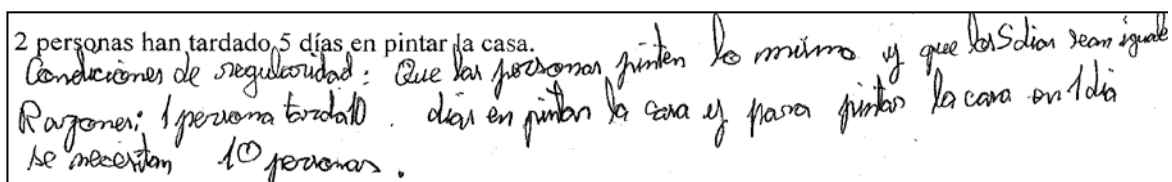 2 personas han tardado 5 días en pintar la casa.
Condiciones de regularidad: Que las personas pinten lo mismo y que los 5 dias sean iguales
Razones: 1 persona tarda 10 días en pintar la casa y para pintar la casa en 1 día
se necesitan 10 personas.